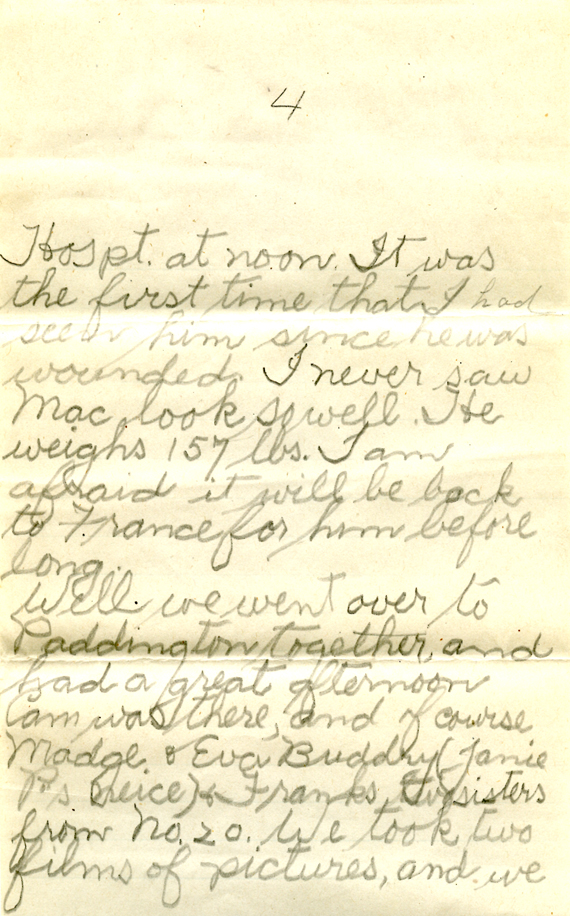 4
Hospt. at noon. It was
the first time that I had
seen him since he was
wounded. I never saw
Mac look so well. He
weighs 157 lbs. I am
afraid it will be back
to France for him before
long.
Well we went over to
Paddington together, and
had a great afternoon
was there, and of course
Madge & Eva Buddry (Janie
P's neice) & Franks, sisters
from No. 20. We took two
films of pictures, and we